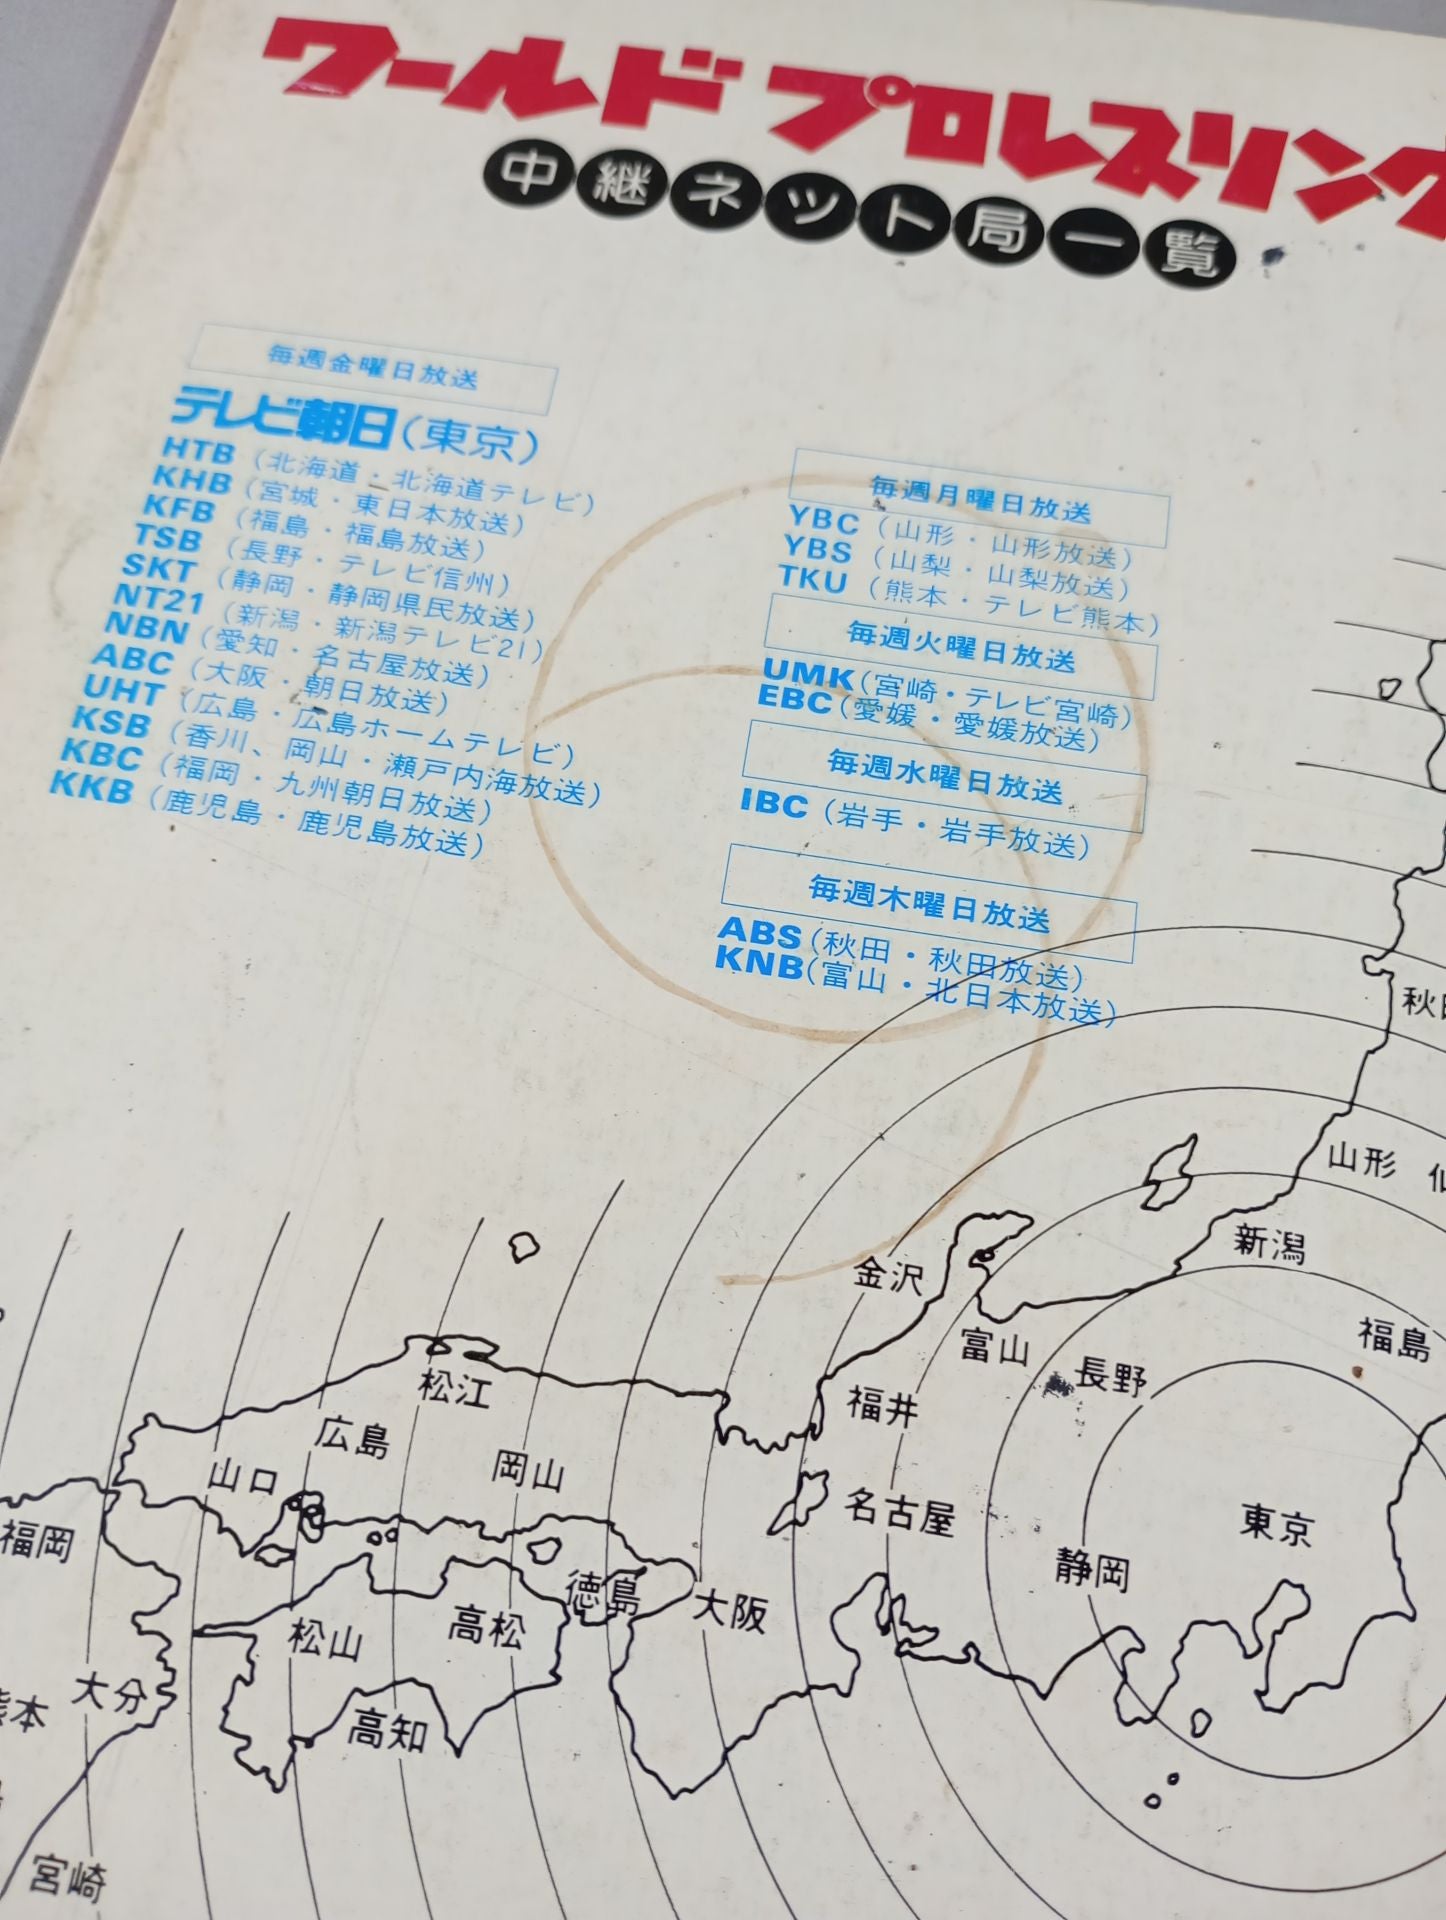 ワールドプロレスリング
中継ネット局一覧
毎週金曜日放送
テレビ朝日(東京)
HTB (北海道・北海道テレビ)
KHB (宮城・東日本放送)
KFB (福島・福島放送)
TSB (長野・テレビ信州)
SKT (静岡・静岡県民放送)
NT21 (新潟・新潟テレビ21)
NBN (愛知・名古屋放送)
ABC (大阪・朝日放送)
UHT (広島・広島ホームテレビ)
KSB (香川、岡山・瀬戸内海放送)
KBC (福岡・九州朝日放送)
KKB (鹿児島・鹿児島放送)
毎週月曜日放送
YBC (山形・山形放送)
YBS (山梨・山梨放送)
TKU (熊本・テレビ熊本)
毎週火曜日放送
UMK (宮崎・テレビ宮崎)
EBC (愛媛・愛媛放送)
毎週水曜日放送
IBC (岩手・岩手放送)
毎週木曜日放送
ABS (秋田・秋田放送)
KNB (富山・北日本放送)
秋田
山形 仙
新潟
金沢
福島
富山
長野
松江
福井
広島
岡山
山口
名古屋
東京
福岡
静岡
徳島
大阪
高松
松山
大分
熊本
高知
宮崎